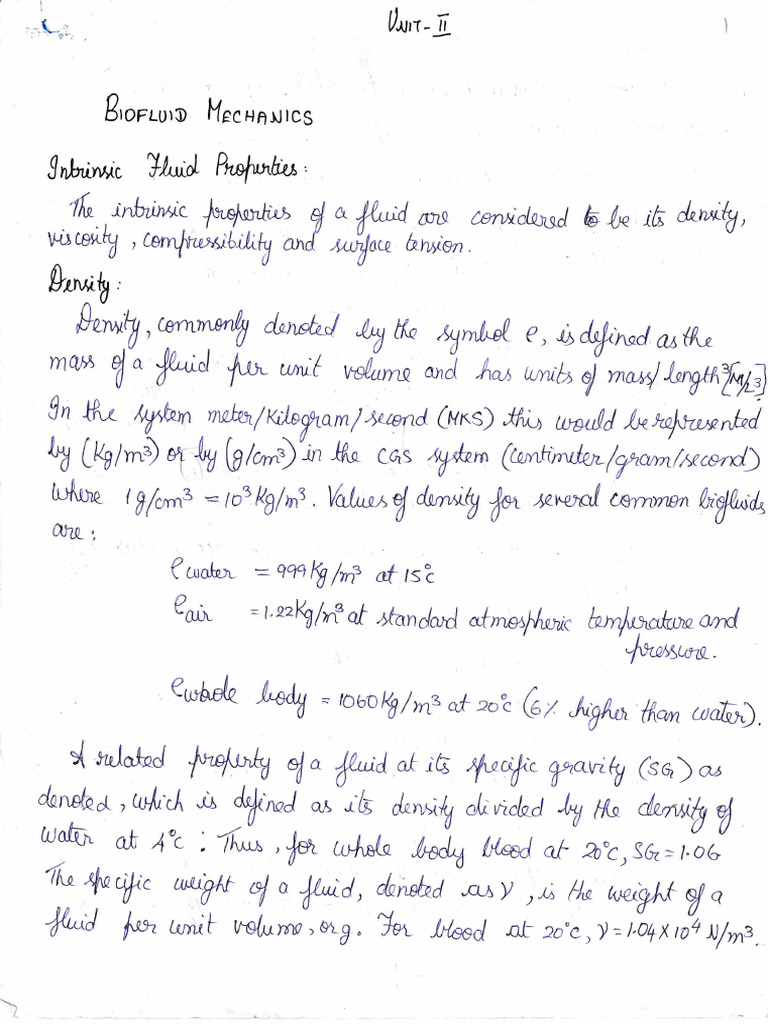 UNIT-II
1
BIOFLUID MECHANICS
Intrinsic Fluid Properties:
The intrinsic properties of a fluid are considered to be its density,
viscosity, compressibility and surface tension.
Density:
Density, commonly denoted by the symbol ρ, is defined as the
mass of a fluid per unit volume and has units of mass/length³[M/L³]
In the system meter/kilogram/second (MKS) this would be represented
by (Kg/m³) or by (g/cm³) in the CGS system (centimeter/gram/second)
where 1g/cm³ = 10³Kg/m³. Values of density for several common biofluids
are:
ρwater = 999Kg/m³ at 15°c
ρair = 1.22Kg/m³ at standard atmospheric temperature and
pressure.
ρwhole body = 1060Kg/m³ at 20°c (6% higher than water).
A related property of a fluid at its specific gravity (SG) as
denoted, which is defined as its density divided by the density of
water at 4°c : Thus, for whole body blood at 20°c, SG = 1.06
The specific weight of a fluid, denoted as γ, is the weight of a
fluid per unit volume, org. For blood at 20°c, γ = 1.04 x 10⁴ N/m³.